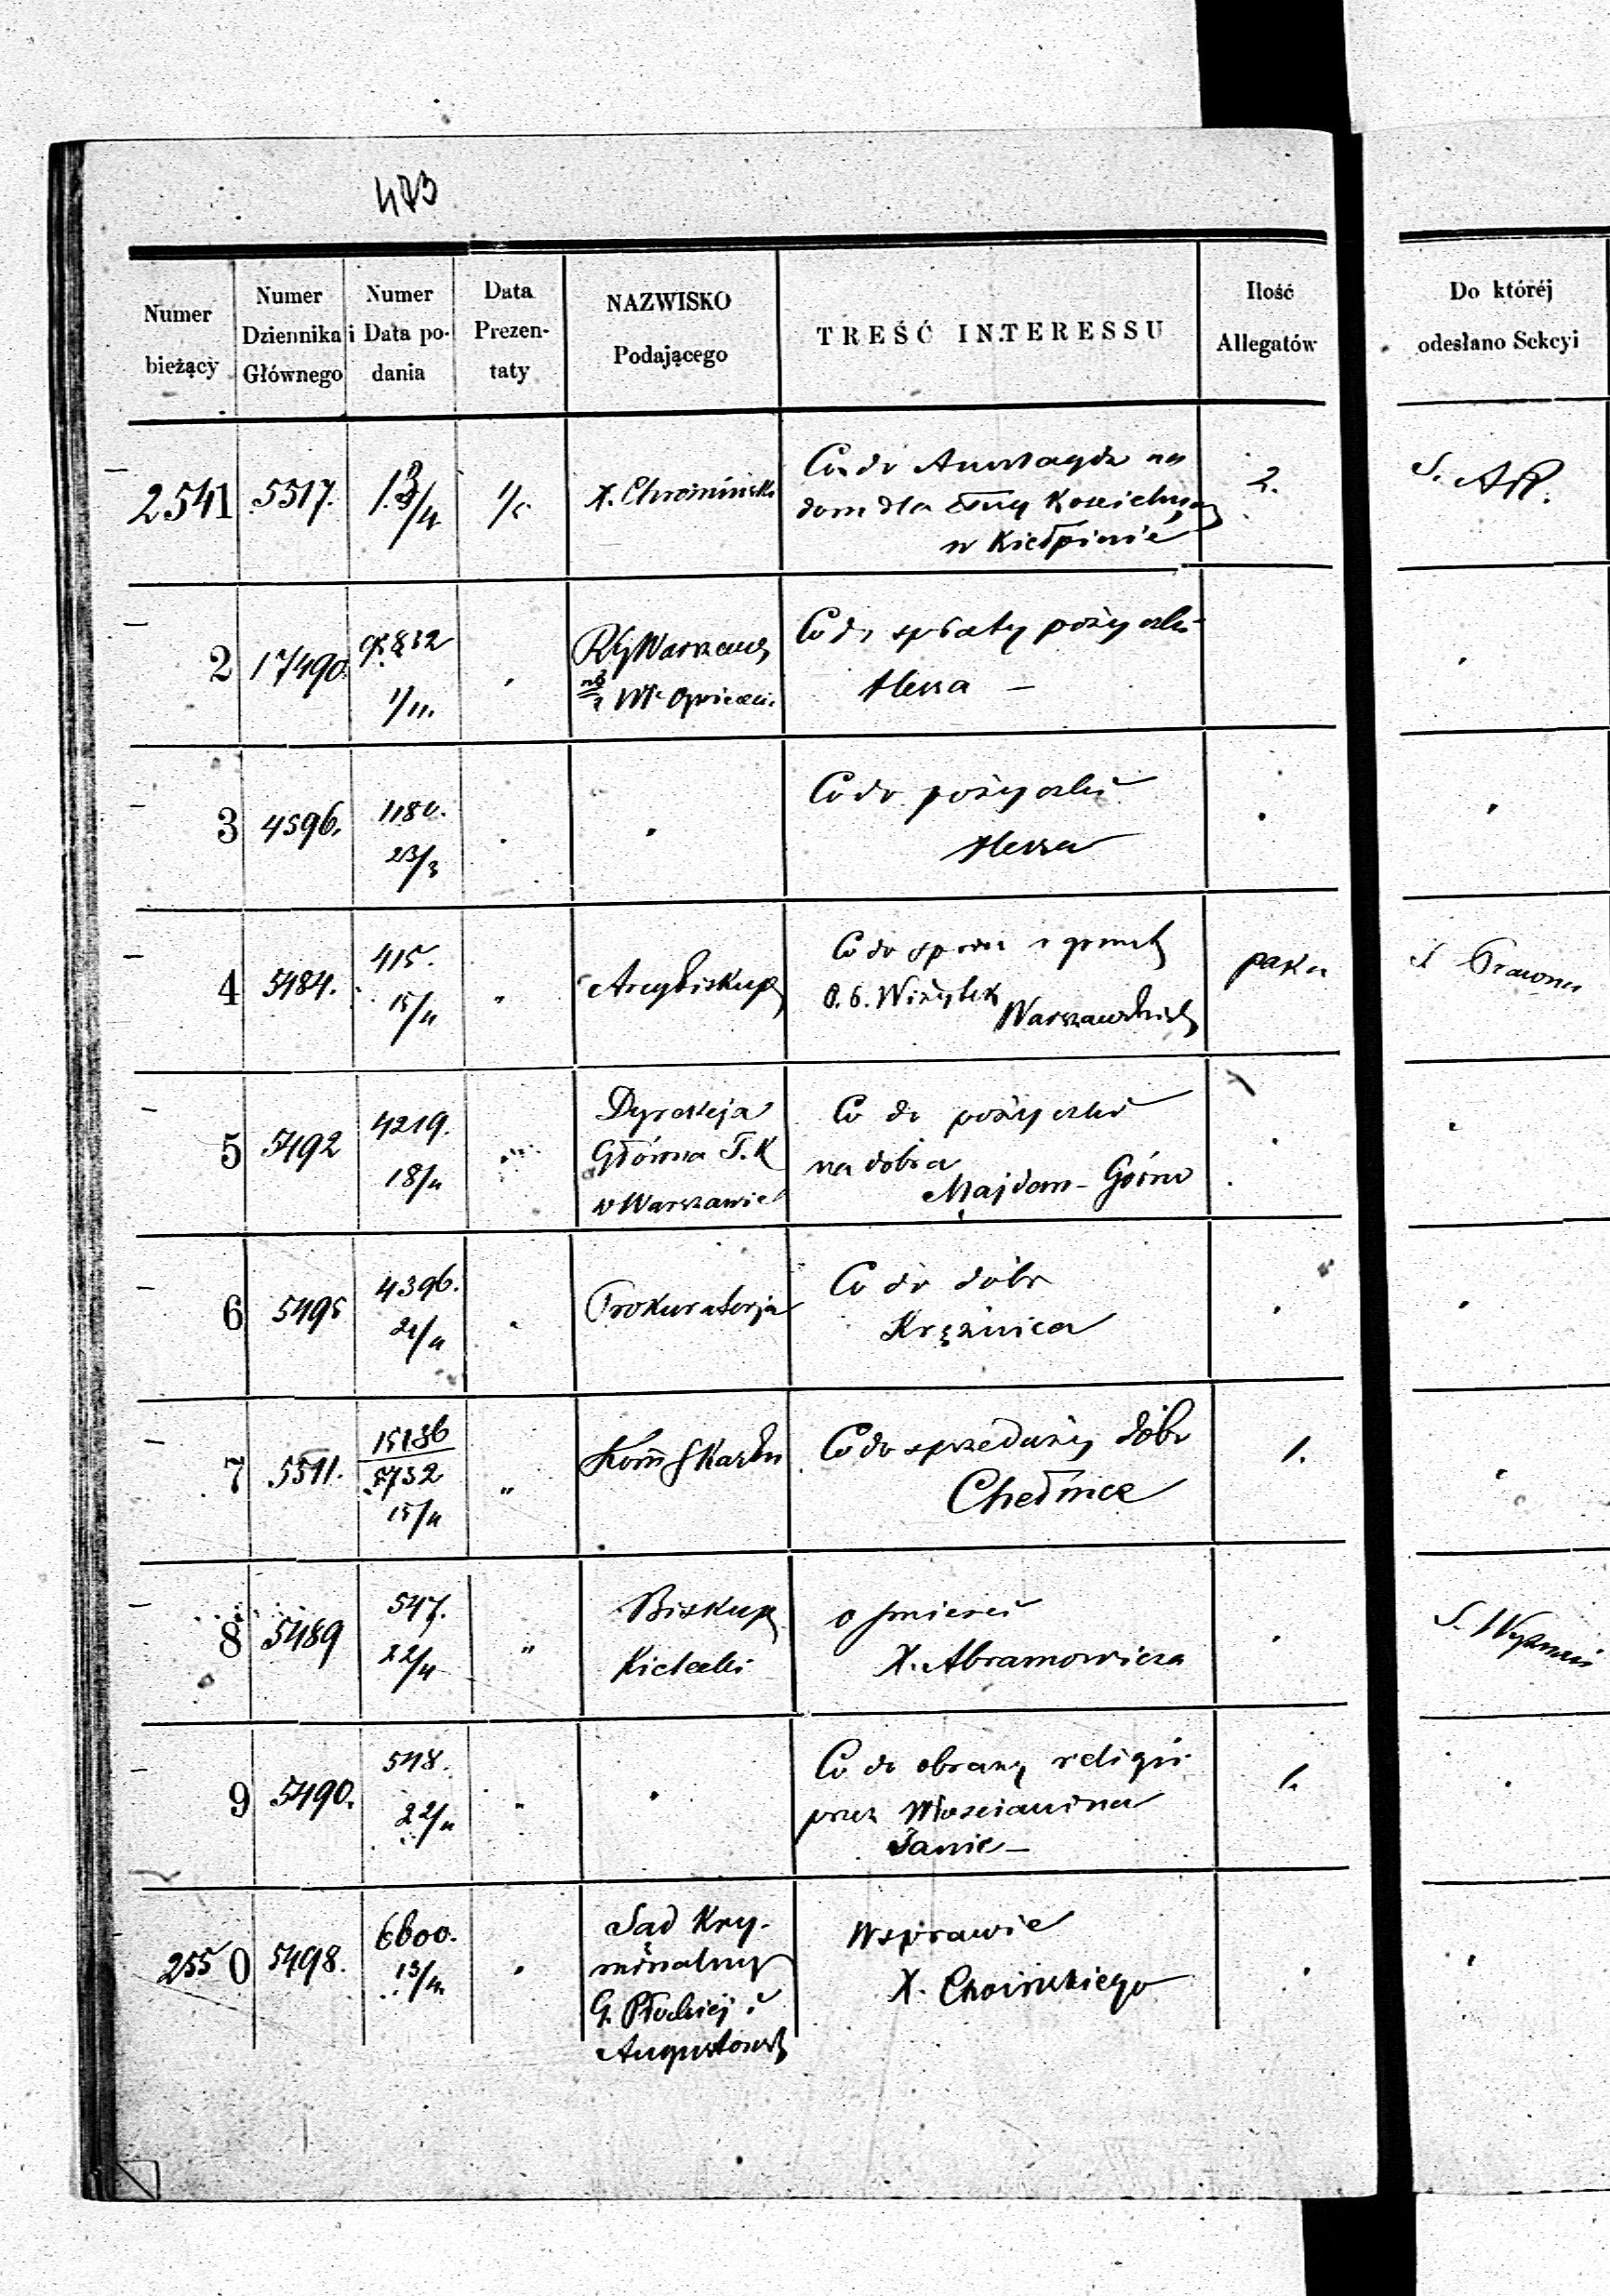 473
Numer bieżący
Numer Dziennika Głównego
Numer i Data podania
Data Prezentaty
NAZWISKO Podającego
TREŚĆ INTERESSU
Ilość Allegatów
Do któréj odesłano Sekcyi
2541 5517. 13/4 1/5 X. Chromiński
Co do
dom dla Kościelnej
w Kiełpinie
2.
2 17490. 1/11.
Co do spłaty pożyczki
Hessa —
3 4596. 1180. 23/3
Co do pożyczki
Hessa
4 5484. 415. 15/4 " Arcybiskup
Co do
P. P. Wizytek
Warszawskich
paka
S. Prawna
5 5492 4219. 18/4
Dyrekcja
Główna T. K
w Warszawie
Co do pożyczki
na dobra
Majdan-Górno
6 5495 4396. 21/4 Prokuratorja
Co do dóbr
Krężnica
7 5511. 15186
5732
15/4
" Komm Skarbu
Co do sprzedaży dóbr
Chełmce
1.
8 5489 547. 22/4 "
Biskup
Kielecki
o śmierci
X. Abramowicza
S. Wyznań
9 5490. 548. 22/4 "
Co do obrazy religii
przez Włościanina
1.
2550 5498. 6600. 13/4
Sąd Kry-
minalny
G. Płockiej i
Augustowsk
W sprawie
X. Choińskiego